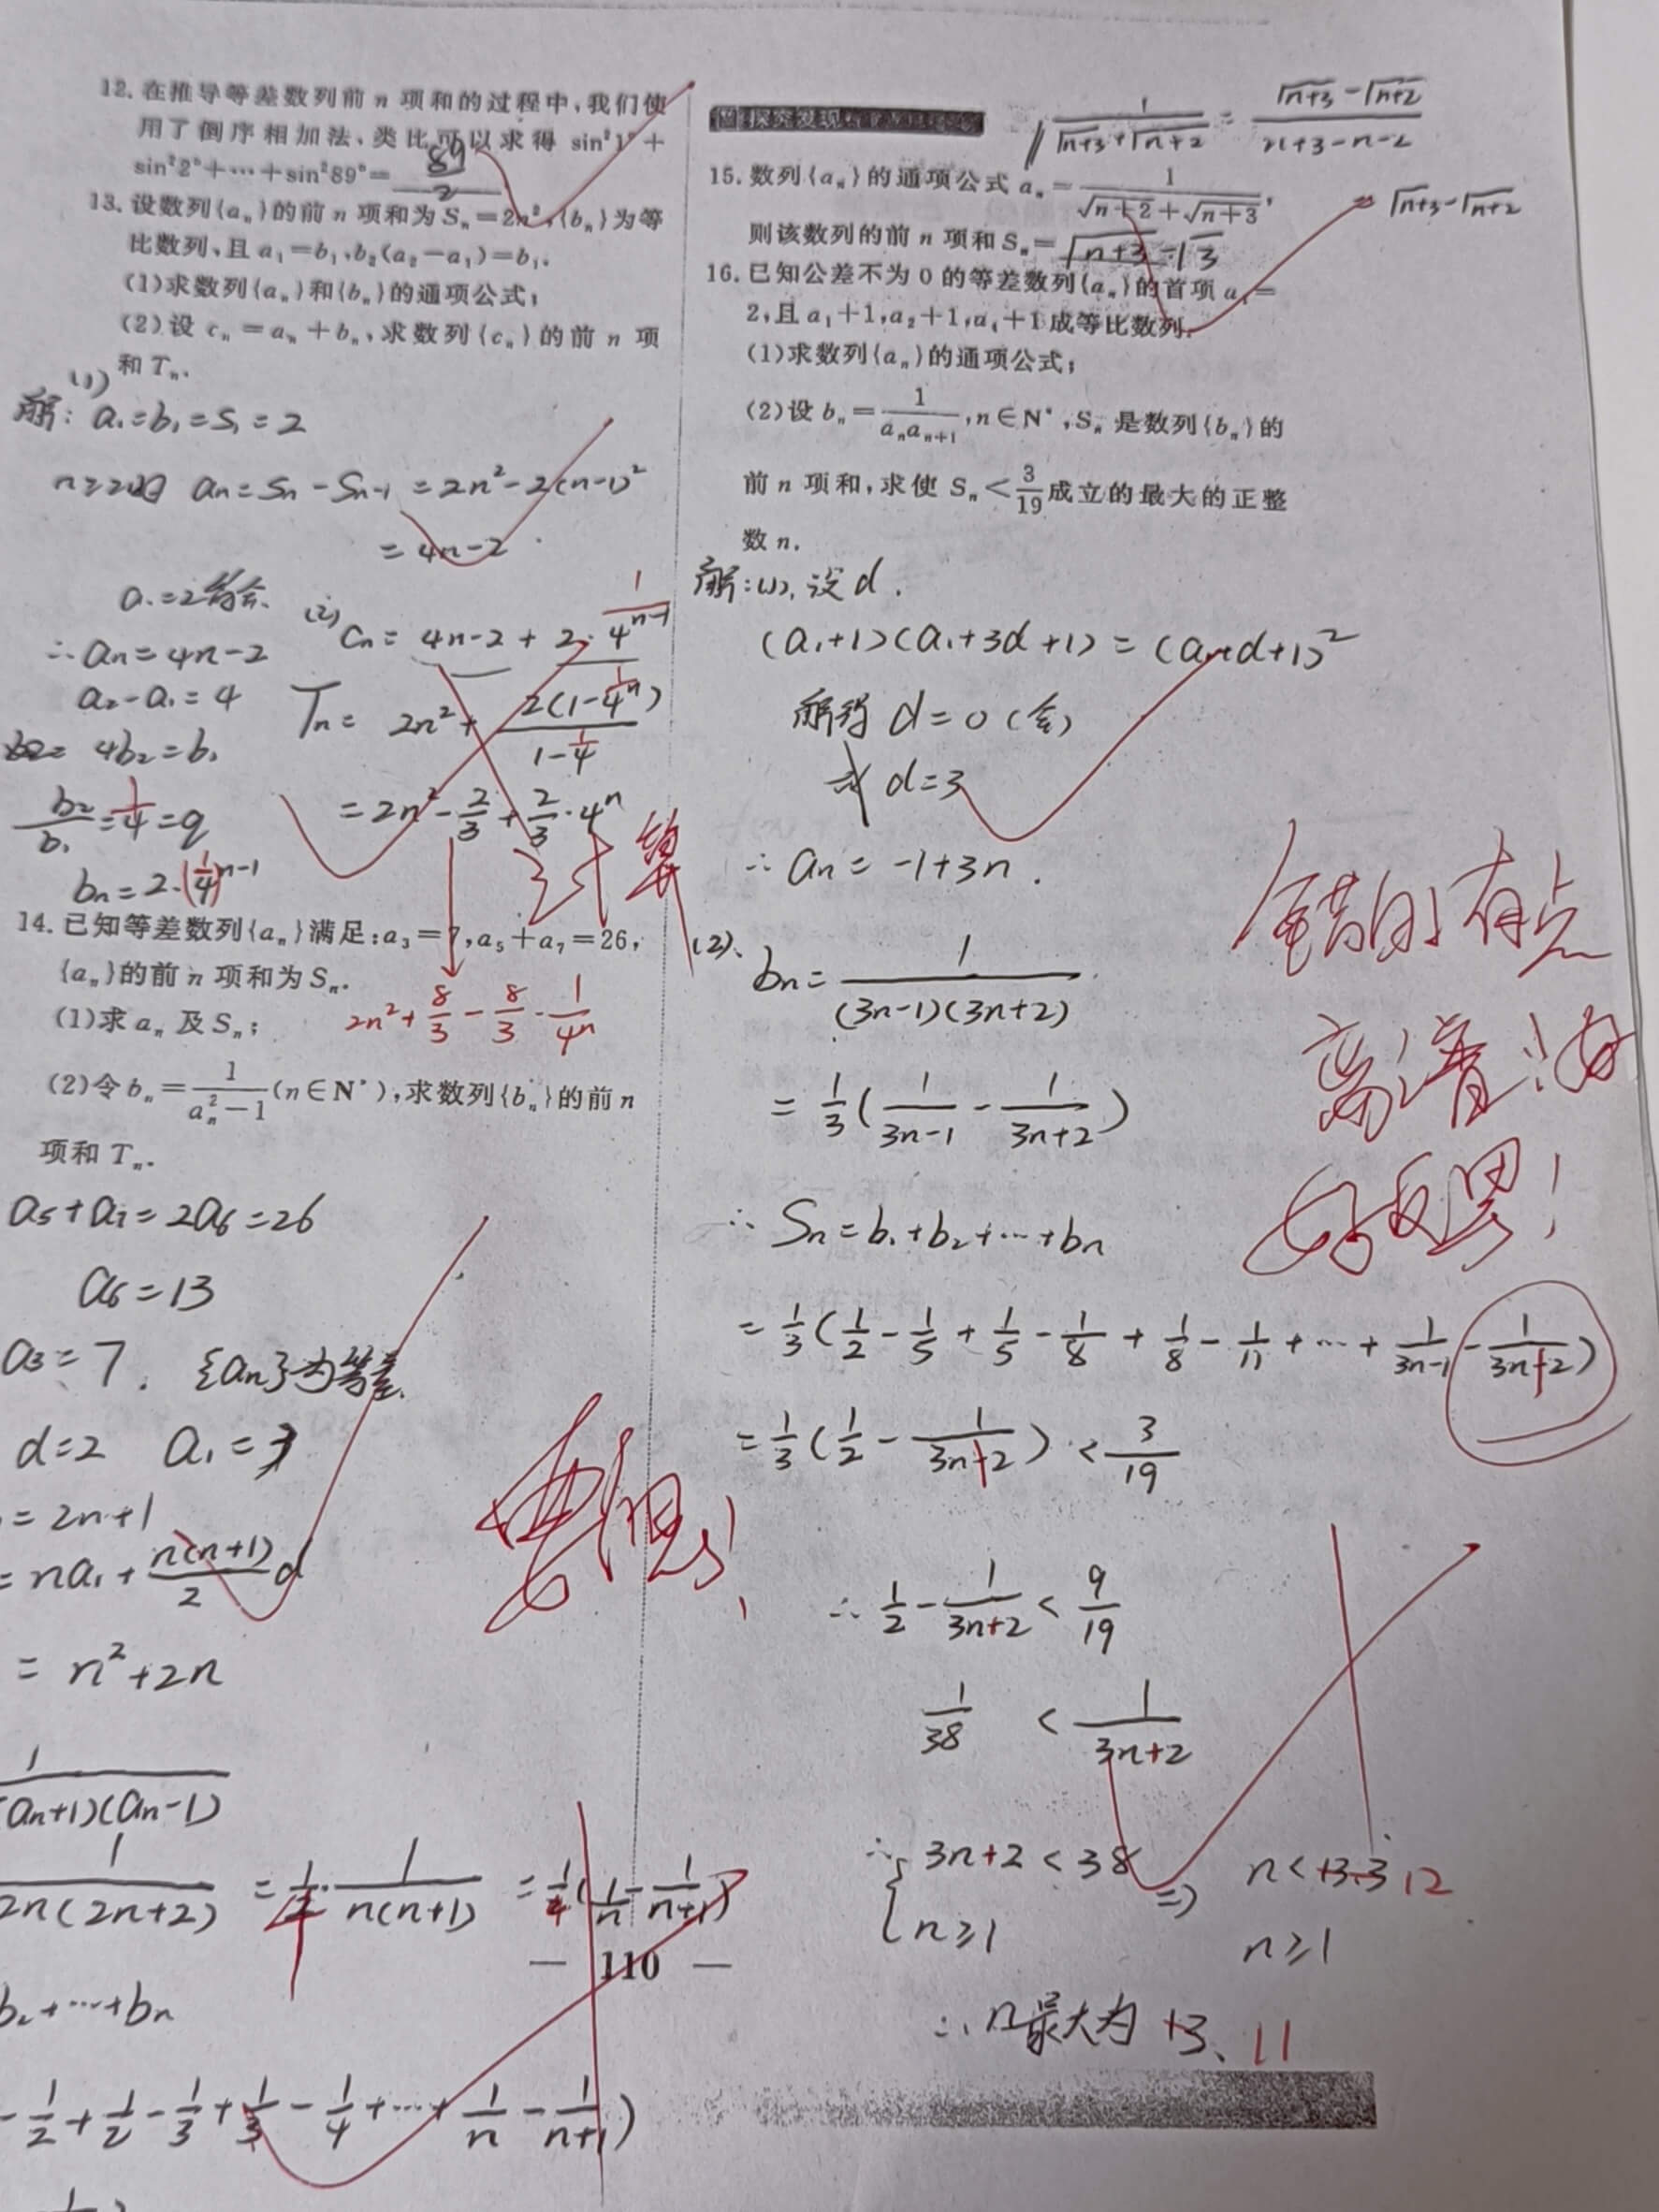 12. 在推导等差数列前 n 项和的过程中,我们使
用了倒序相加法、类比可以求得 sin²1°+
sin²2°+…+sin²89°= 89/2
13. 设数列{aₙ}的前 n 项和为 Sₙ=2n²,{bₙ}为等
比数列、且 a₁=b₁,b₂(a₂-a₁)=b₁.
(1)求数列{aₙ}和{bₙ}的通项公式;
(2)设 cₙ=aₙ+bₙ,求数列{cₙ}的前 n 项
和 Tₙ.
(1)
解: a₁=b₁=S₁=2
n≥2时 aₙ=Sₙ-Sₙ₋₁=2n²-2(n-1)²
=4n-2
a₁=2符合.
∴aₙ=4n-2
a₂-a₁=4
4b₂=b₁
b₂/b₁=1/4=q
bₙ=2·(1/4)ⁿ⁻¹
(2) cₙ=4n-2+2·1/4ⁿ⁻¹
Tₙ=2n²+2(1-1/4ⁿ)/(1-1/4)
=2n²-2/3+2/3·4ⁿ
计算
2n²+8/3-8/3·1/4ⁿ
14. 已知等差数列{aₙ}满足:a₃=7,a₅+a₇=26,
{aₙ}的前 n 项和为 Sₙ.
(1)求 aₙ 及 Sₙ;
(2)令 bₙ=1/(aₙ²-1)(n∈N*),求数列{bₙ}的前 n
项和 Tₙ.
a₅+a₇=2a₆=26
a₆=13
a₃=7. {aₙ}为等差.
d=2 a₁=3
=2n+1
=na₁+n(n+1)/2 d
=n²+2n
1/(aₙ+1)(aₙ-1)
1/2n(2n+2)=1/4·1/n(n+1)=1/4(1/n-1/(n+1))
b₂+…+bₙ
-1/2+1/2-1/3+1/3-1/4+…+1/n-1/(n+1))
— 110 —
探究发现
1/(√n+3+√n+2)=(√n+3-√n+2)/(n+3-n-2)
=√n+3-√n+2
15. 数列{aₙ}的通项公式 aₙ=1/(√n+2+√n+3),
则该数列的前 n 项和 Sₙ=√n+3-√3
16. 已知公差不为 0 的等差数列{aₙ}的首项 a₁=
2,且 a₁+1,a₂+1,a₄+1 成等比数列.
(1)求数列{aₙ}的通项公式;
(2)设 bₙ=1/(aₙaₙ₊₁),n∈N*,Sₙ 是数列{bₙ}的
前 n 项和,求使 Sₙ<3/19 成立的最大的正整
数 n.
解:(1). 设d.
(a₁+1)(a₁+3d+1)=(a₁+d+1)²
解得 d=0(舍)
或 d=3
∴aₙ=-1+3n.
(2). bₙ=1/(3n-1)(3n+2)
=1/3(1/(3n-1)-1/(3n+2))
∴Sₙ=b₁+b₂+…+bₙ
=1/3(1/2-1/5+1/5-1/8+1/8-1/11+…+1/(3n-1)-1/(3n+2))
=1/3(1/2-1/(3n+2))<3/19
∴1/2-1/(3n+2)<9/19
1/38<1/(3n+2)
∴{3n+2<38 => n<12
n≥1 n≥1
∴n最大为 13. 11
错的有点